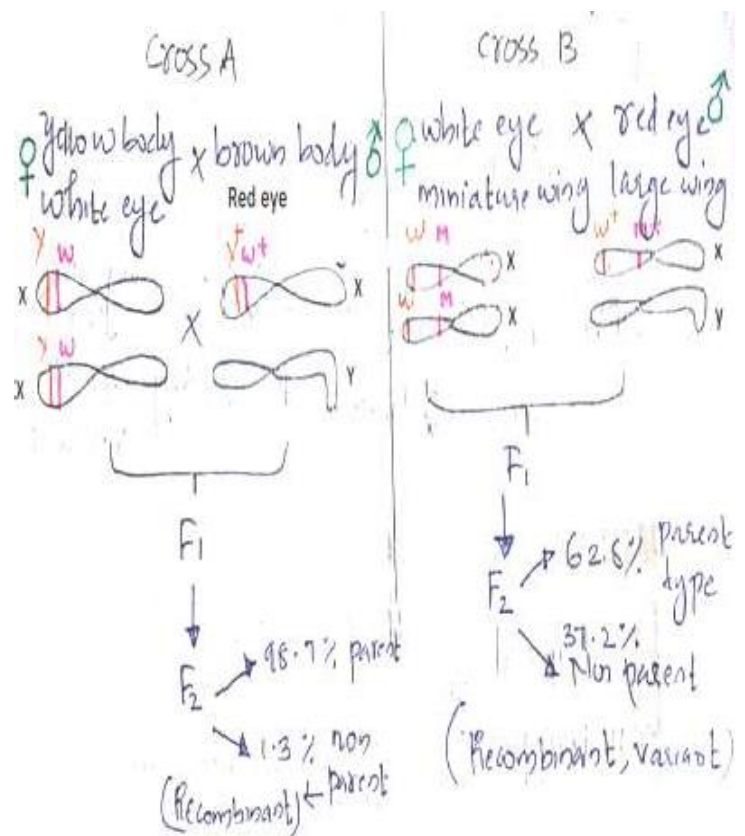 Cross A
♀ Yellow body × brown body ♂
white eye Red eye
y w y+ w+
X X
×
y w
X Y
F1
F2
98.7% parent
1.3% non
parent
(Recombinant) ←
Cross B
♀ white eye × red eye ♂
miniature wing large wing
w M w+ M+
X X
w M
X Y
F1
F2
62.8% parent
type
37.2%
Non parent
(Recombinant, variant)